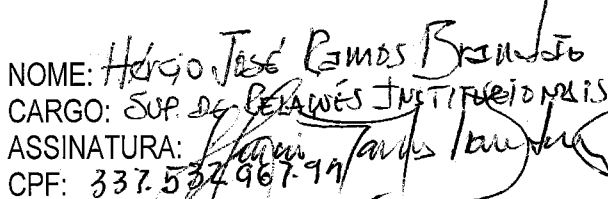 NOME: Hércio José Ramos Brandão
CARGO: SUP. DE RELAÇÕES INSTITUCIONAIS
ASSINATURA:
CPF: 337.532.967-91